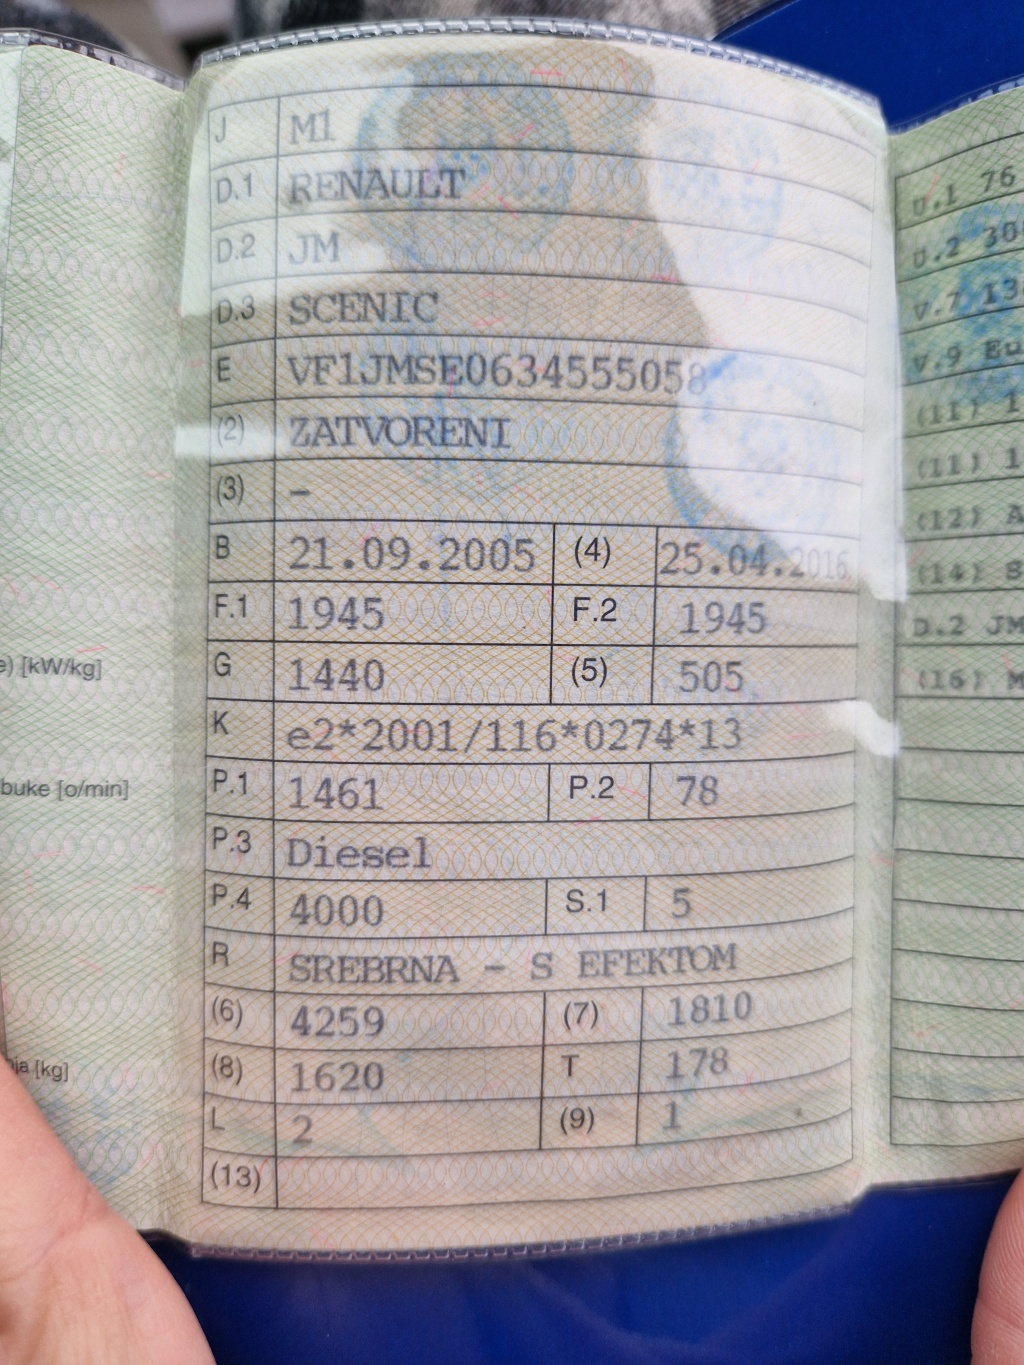 J M1
D.1 RENAULT
D.2 JM
D.3 SCENIC
E VF1JMSE0634555058
(2) ZATVORENI
(3) -
B 21.09.2005 (4) 25.04.2016
F.1 1945 F.2 1945
G 1440 (5) 505
K e2*2001/116*0274*13
P.1 1461 P.2 78
P.3 Diesel
P.4 4000 S.1 5
R SREBRNA - S EFEKTOM
(6) 4259 (7) 1810
(8) 1620 T 178
L 2 (9) 1
(13)
[kW/kg]
buke [o/min]
[kg]
U.1 76
U.2
V.7
V.9
(11) 1
(11) 1
(12)
(14)
D.2 JM
(16)